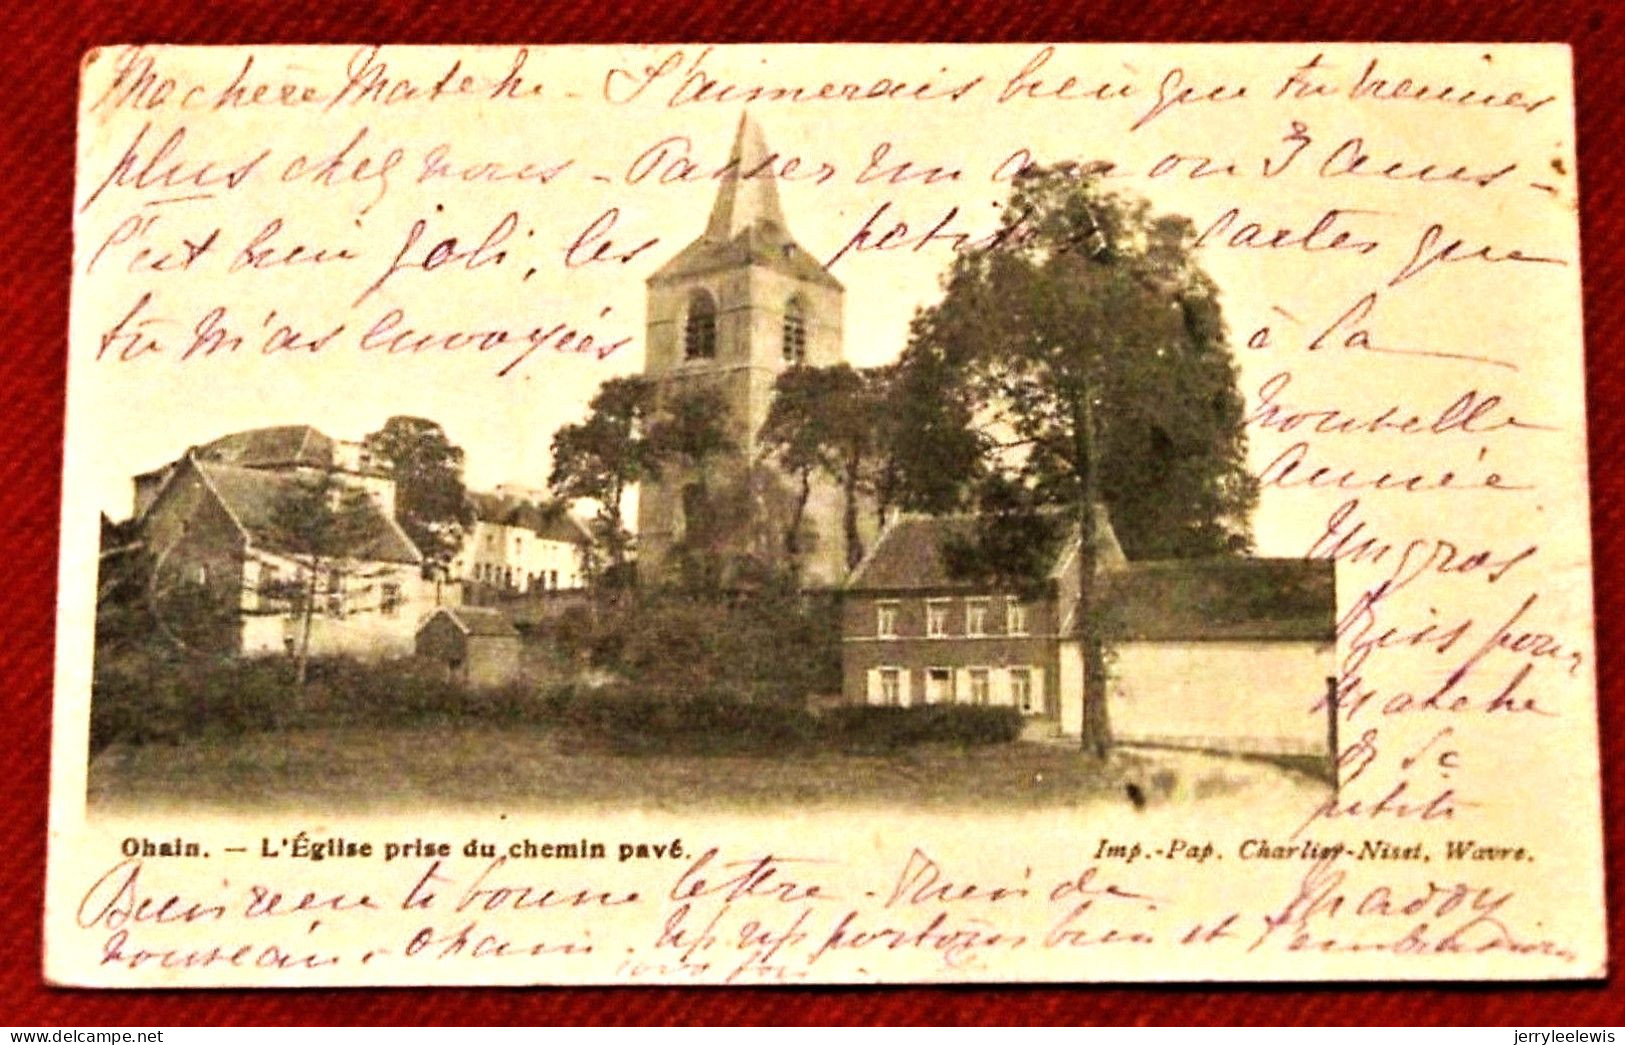 Ma chère Matche - J'aimerais bien que tu viennes
plus chez nous - Passer un an ou 3 Anus -
C'est bien joli, les petites cartes que
tu m'as envoyées
à la
Nouvelle
Année
Un gros
Kiss pour
Matche
& Sa
petite
Ohain. - L'Église prise du chemin pavé.
Imp.-Pap. Charlier-Niset, Wavre.
Bien reçu ta bonne lettre - Rien de Maddy
nouveau, Ohain. portons bien et t'embrassons
1000 fois
jerryleelewis
delcampe.net